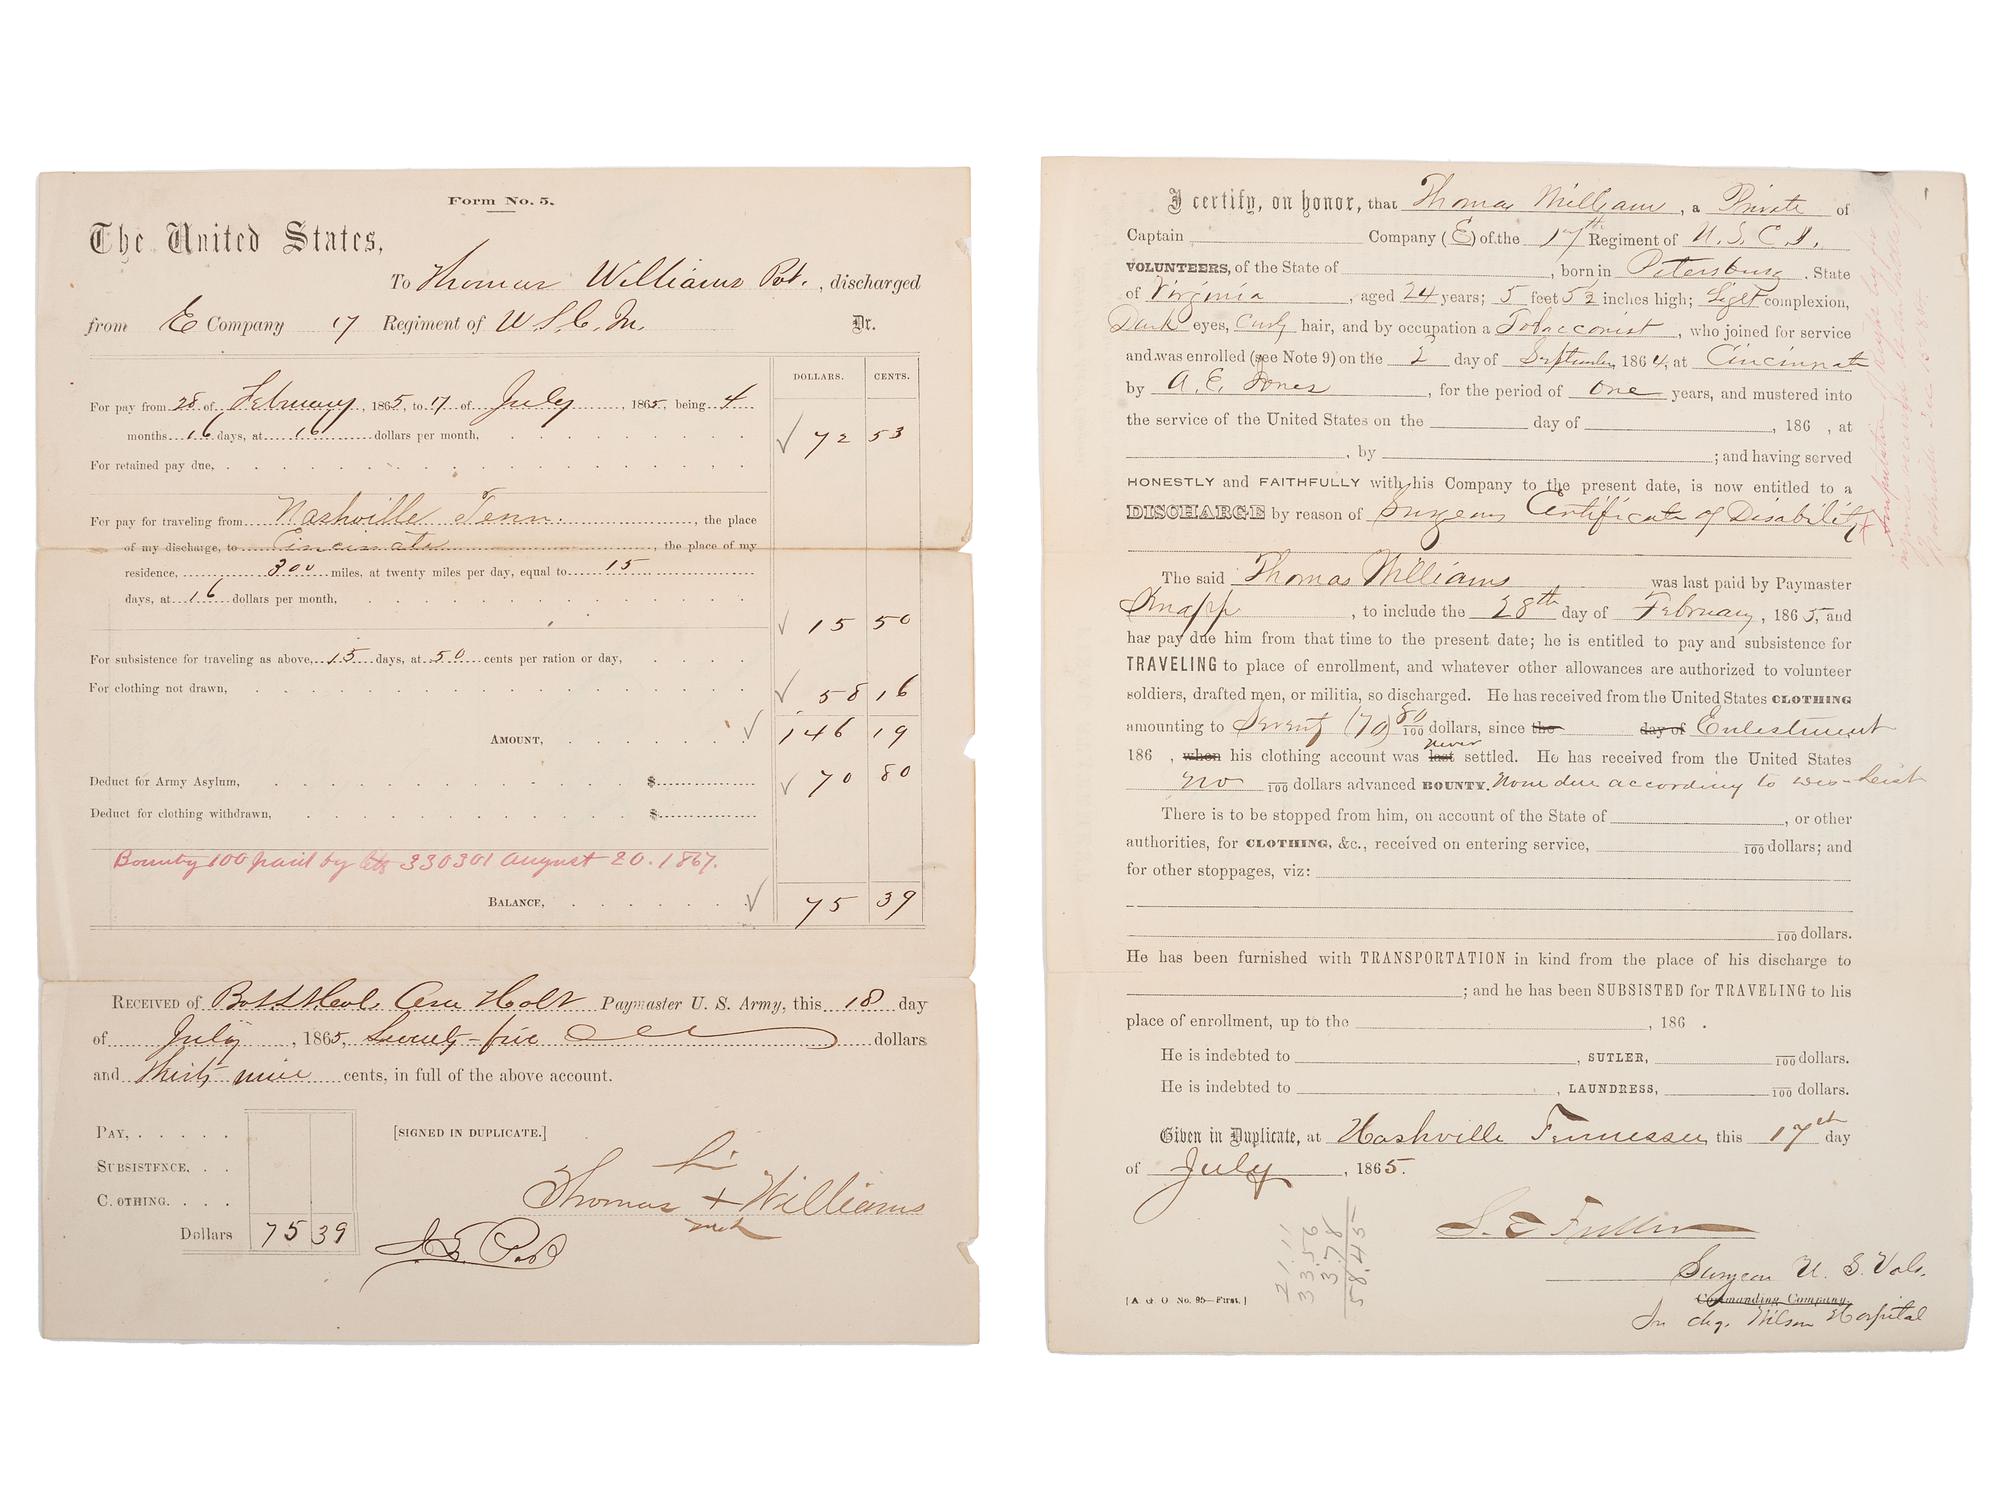 Form No. 5.
The United States,
To Thomas Williams Pvt., discharged
from E Company 17 Regiment of U.S.C. In. Dr.
DOLLARS. CENTS.
For pay from 28 of February, 1865, to 17 of July, 1865, being 4
months 16 days, at 16 dollars per month, 72 53
For retained pay due,
For pay for traveling from Nashville Tenn. , the place
of my discharge, to Cincinnati , the place of my
residence, 300 miles, at twenty miles per day, equal to 15
days, at 16 dollars per month,
15 50
For subsistence for traveling as above, 15 days, at 50 cents per ration or day,
For clothing not drawn, 58 16
AMOUNT, 146 19
Deduct for Army Asylum, $ 70 80
Deduct for clothing withdrawn, $
Bounty 100 paid by 330301 August 20. 1867.
BALANCE, 75 39
RECEIVED of Holt Paymaster U. S. Army, this 18 day
of July , 1865, Seventy-five dollars
and Thirty nine cents, in full of the above account.
PAY,
[SIGNED IN DUPLICATE.]
SUBSISTENCE,
his
CLOTHING.
Thomas + Williams
mark
Dollars 75 39
I certify, on honor, that Thomas Williams , a Private of
Captain Company (E) of the 17th Regiment of U. S. C. I.
VOLUNTEERS, of the State of , born in Petersburg . State
of Virginia , aged 24 years; 5 feet 5½ inches high; Light complexion,
Dark eyes, Curly hair, and by occupation a Tobacconist , who joined for service
and was enrolled (see Note 9) on the 2 day of September, 1864, at Cincinnati
by A. E. Jones , for the period of one years, and mustered into
the service of the United States on the day of , 186 , at
, by ; and having served
HONESTLY and FAITHFULLY with his Company to the present date, is now entitled to a
DISCHARGE by reason of Surgeons Certificate of Disability
The said Thomas Williams was last paid by Paymaster
Knapp , to include the 28th day of February, 1865, and
has pay due him from that time to the present date; he is entitled to pay and subsistence for
TRAVELING to place of enrollment, and whatever other allowances are authorized to volunteer
soldiers, drafted men, or militia, so discharged. He has received from the United States CLOTHING
amounting to Seventy (70) 80/100 dollars, since the day of Enlestment
186 , when his clothing account was last never settled. He has received from the United States
no 100 dollars advanced BOUNTY. None due according to
There is to be stopped from him, on account of the State of , or other
authorities, for CLOTHING, &c., received on entering service, 100 dollars; and
for other stoppages, viz:
100 dollars.
He has been furnished with TRANSPORTATION in kind from the place of his discharge to
; and he has been SUBSISTED for TRAVELING to his
place of enrollment, up to the , 186 .
He is indebted to , SUTLER, 100 dollars.
He is indebted to , LAUNDRESS, 100 dollars.
Given in Duplicate, at Nashville Tennessee, this 17th day
of July , 1865.
21.11
33.56
3.78
58.45
S. E. Fuller
Surgeon U. S. Vols.
Commanding Company.
In chg. Wilson Hospital
[A. G. O. No. 95—First.]